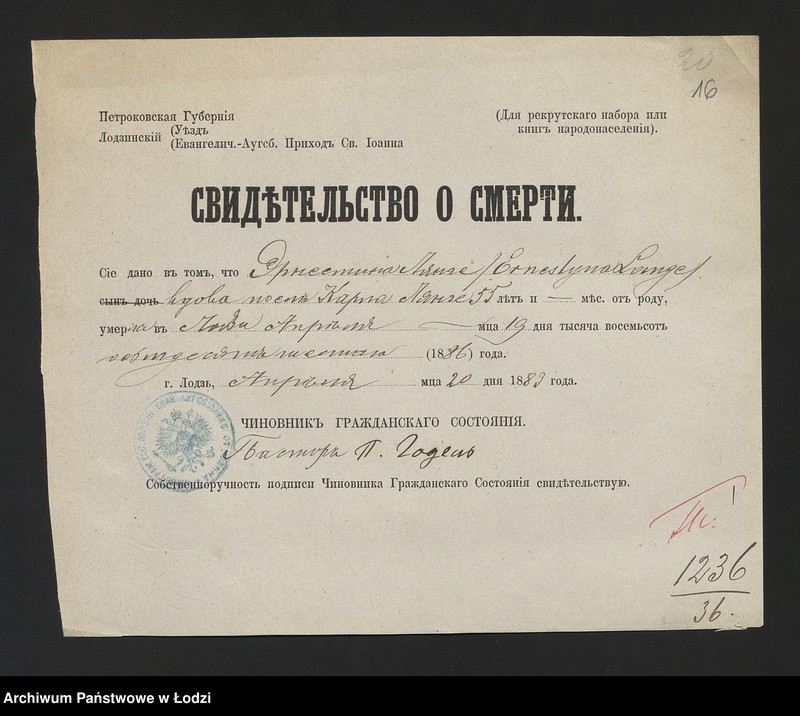 20
16
Петроковская Губернія
Лодзинскій (Уѣздъ
(Евангелич.-Аугсб. Приходъ Св. Іоанна
(Для рекрутскаго набора или
книгъ народонаселенія).
СВИДѢТЕЛЬСТВО О СМЕРТИ.
Сіе дано въ томъ, что Эрнестина Лянге (Ernestyna Lange)
сынъ дочь вдова послѣ Карла Лянге 55 лѣтъ и — мѣс. отъ роду,
умерла въ Лодзи Апрѣля — мца 19 дня тысяча восемьсотъ
восемдесятъ шестаго (1886) года.
г. Лодзь, Апрѣля мца 20 дня 1889 года.
ЧИНОВНИКЪ ГРАЖДАНСКАГО СОСТОЯНІЯ.
Пасторъ
Собственноручность подписи Чиновника Гражданскаго Состоянія свидѣтельствую.
1236
36.
Archiwum Państwowe w Łodzi